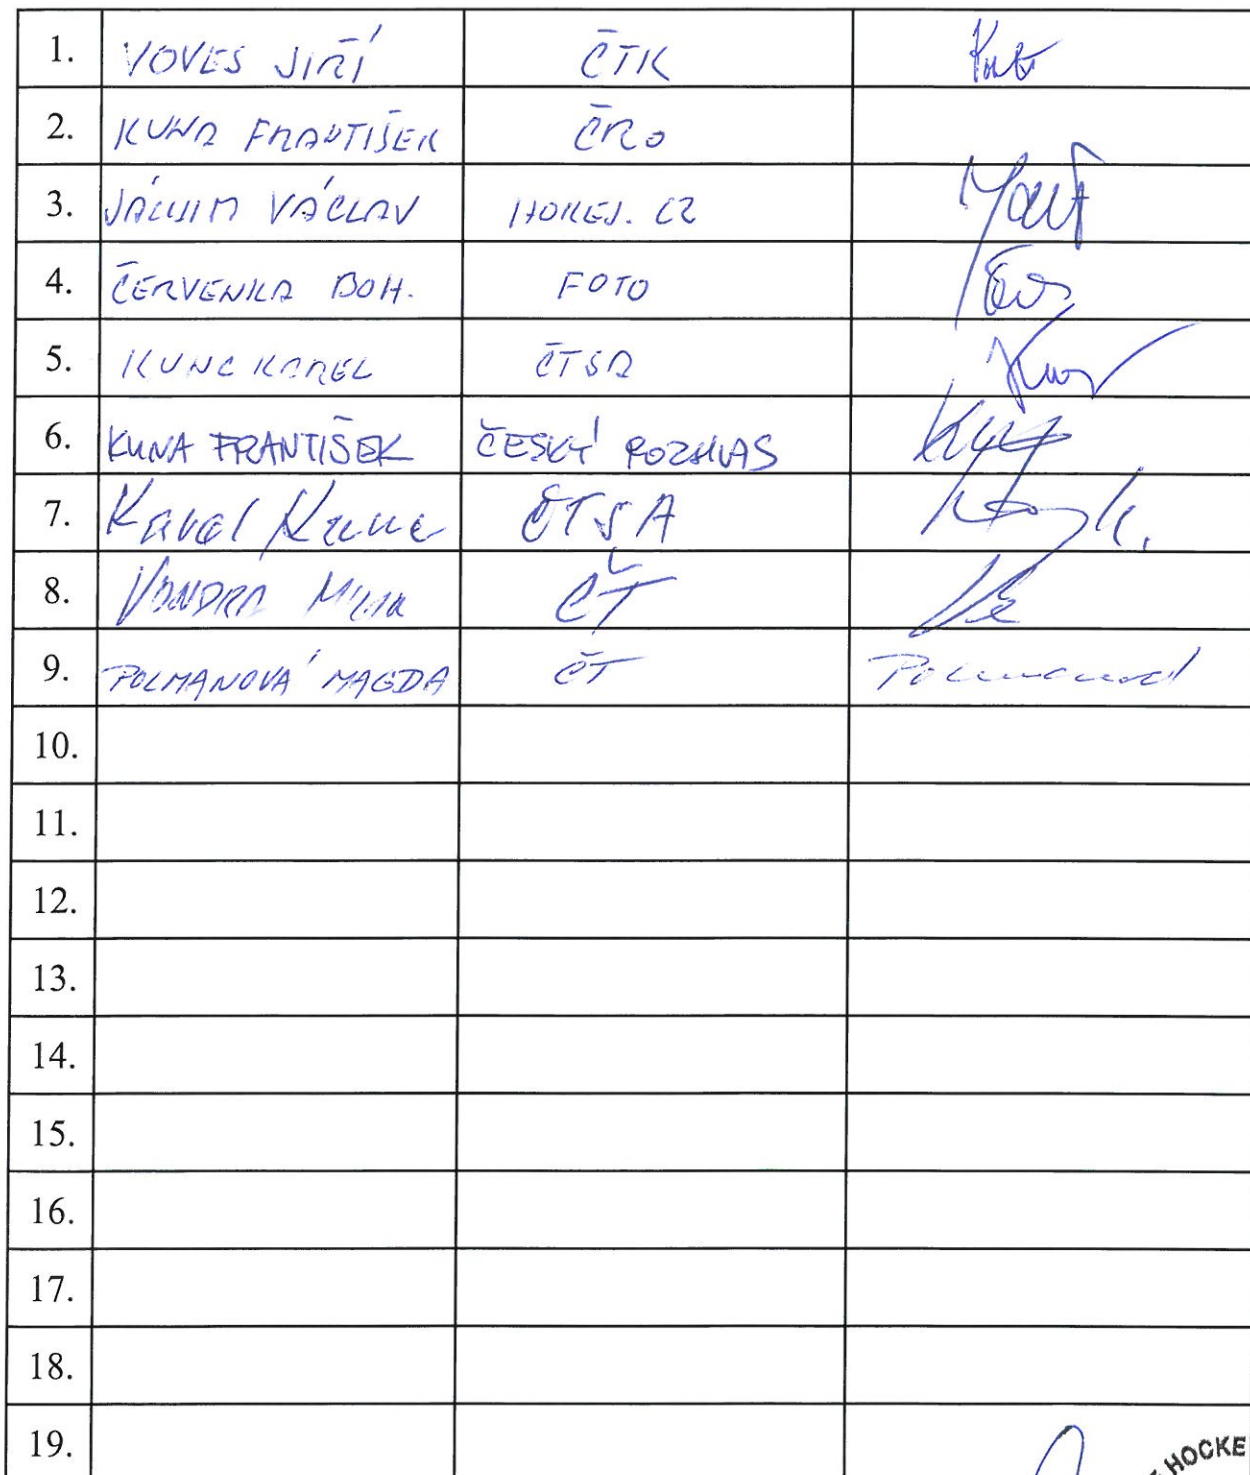 1. VOVES JIŘÍ ČTK
2. KUNA FRANTIŠEK ČRO
3. JÁCHIM VÁCLAV HOKEJ.CZ
4. ČERVENKA BOH. FOTO
5. KUNC KAREL ČTSA
6. KUNA FRANTIŠEK ČESKÝ ROZHLAS
7. Karel Kunc ČTSA
8. VONDRA ČT
9. POLMANOVÁ MAGDA ČT Polmanová
10.
11.
12.
13.
14.
15.
16.
17.
18.
19.
HOCKE